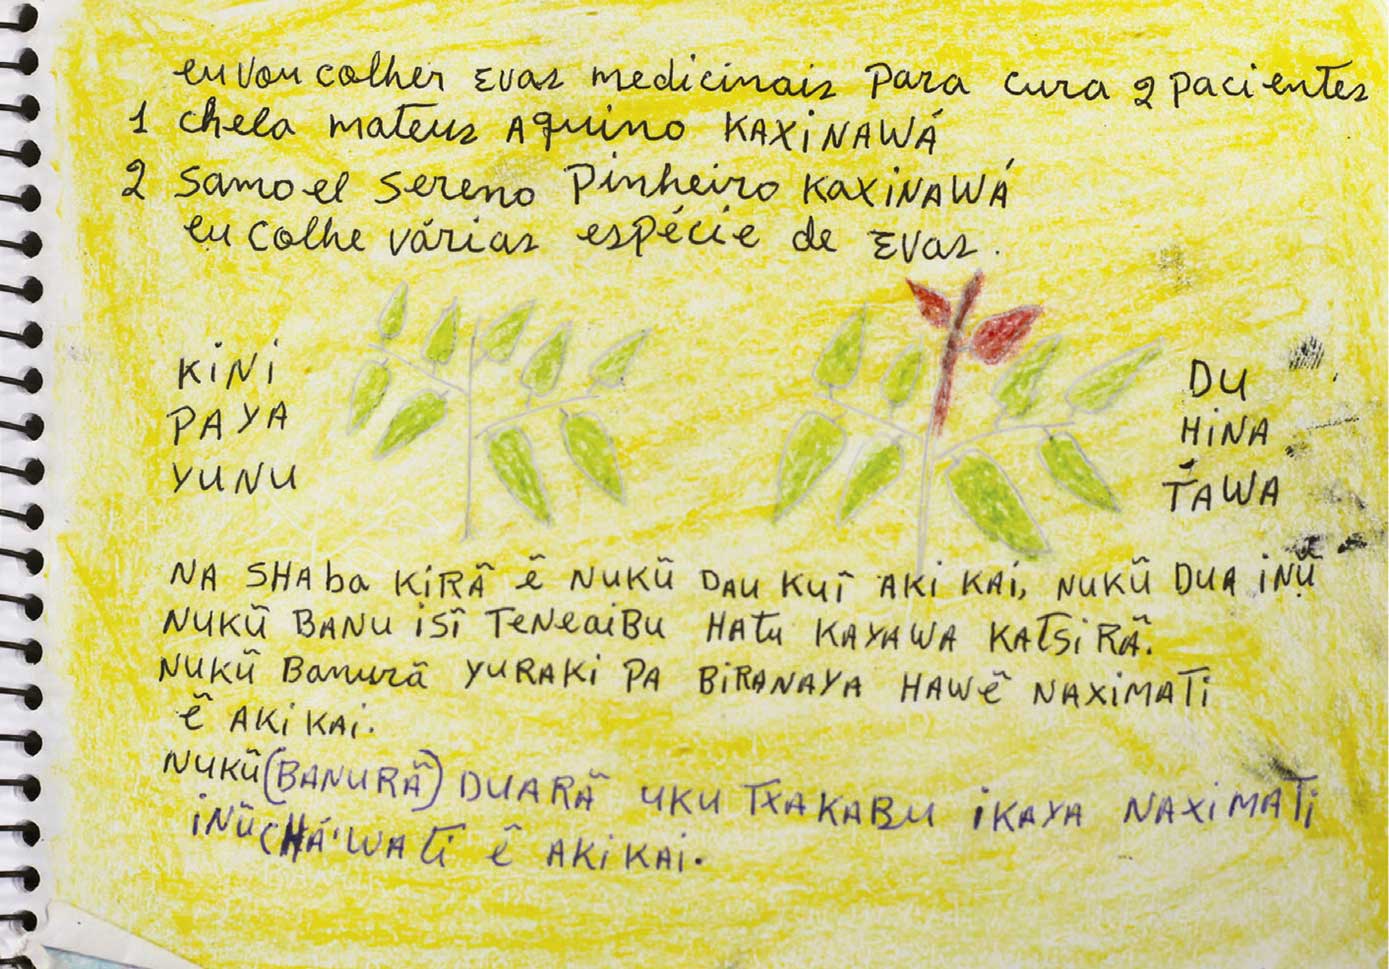 eu vou colher Evas medicinais para cura 2 pacientes
1 chela mateus Aquino KAXINAWÁ
2 Samoel Sereno Pinheiro KAXINAWÁ
eu colhe várias espécie de Evas.
KINI
PAYA
YUNU
DU
HINA
TAWA
NA SHAba KIRÃ Ẽ NUKŨ DAU KUĨ AKI KAI, NUKŨ DUA INŨ
NUKŨ BANU ISĨ TENEAIBU HATU KAYAWA KATSIRÃ.
NUKŨ BANURÃ YURAKI PA BIRANAYA HAWẼ NAXIMATI
Ẽ AKI KAI.
NUKŨ (BANURÃ) DUARÃ UKU TXAKABU IKAYA NAXIMATI
INŨ CHÁ'WATI Ẽ AKI KAI.